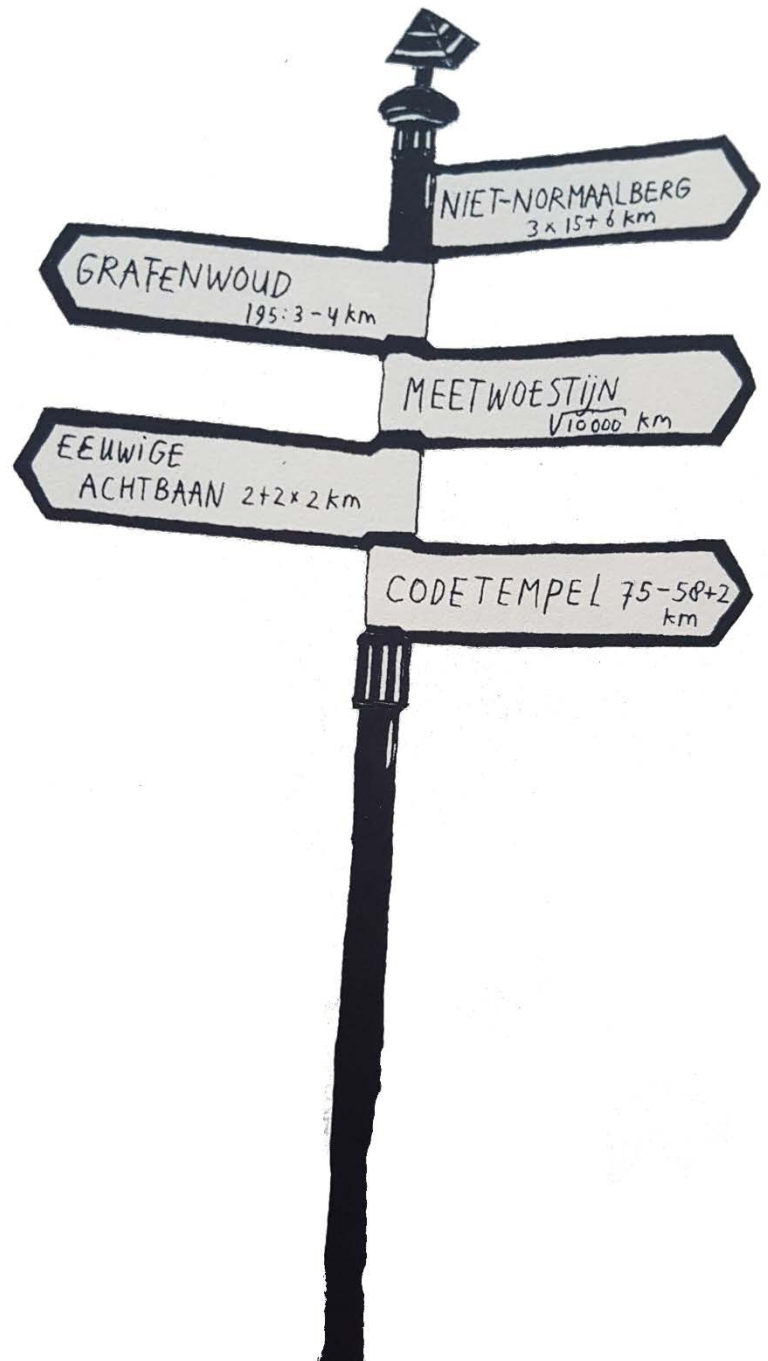 NIET-NORMAALBERG
3 x 15 + 6 km
GRAFENWOUD
195:3-4 km
MEETWOESTIJN
√10000 km
EEUWIGE
ACHTBAAN 2+2x2 km
CODETEMPEL 75-58+2
km